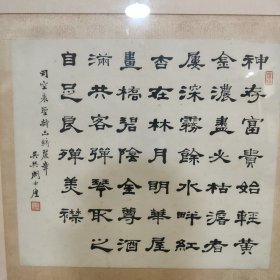 神存富貴始輕黃
金濃盡必枯澹者
屢深霧餘水畔紅
杏在林月明華屋
畫橋碧陰金尊酒
滿共客彈琴取之
自足良殫美襟
司空表聖詩品綺麗章
吳興周